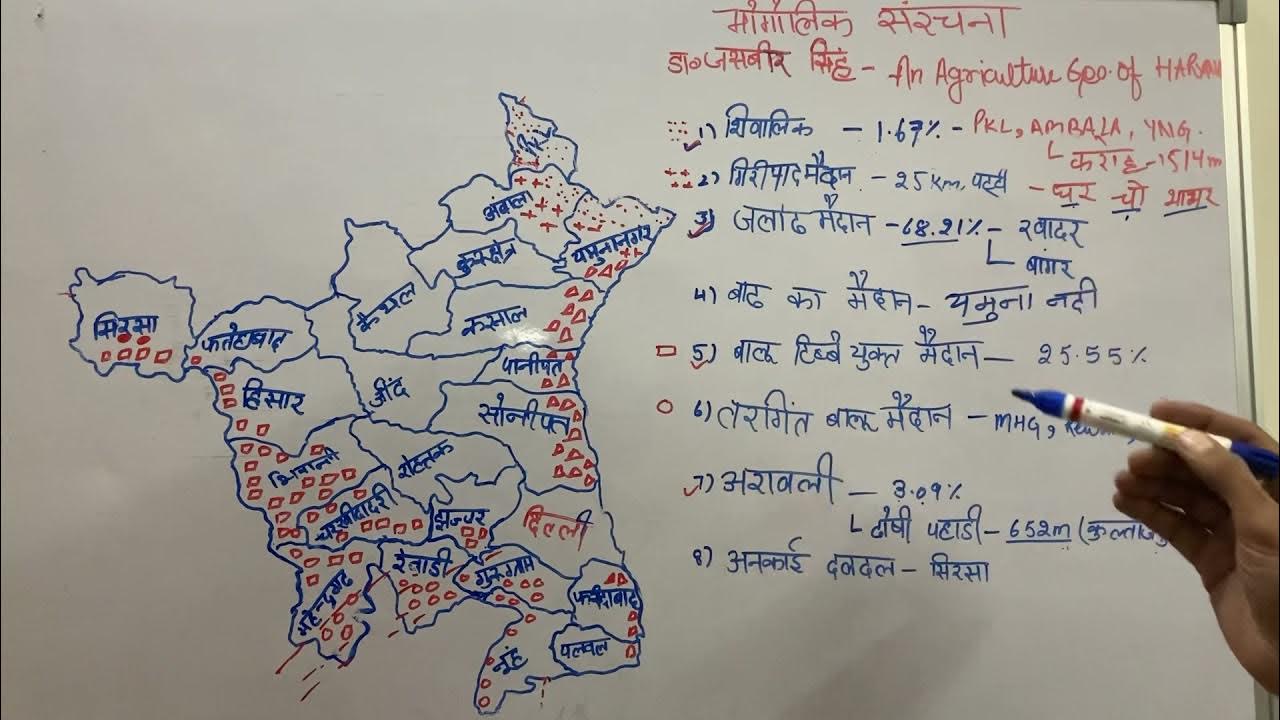 भौगोलिक संरचना
डा० जसबीर सिंह - An Agriculture Geo. of HARYANA
1) शिवालिक - 1.67% - PKL, AMBALA, YNG.
करोह - 1514m
2) गिरीपाद मैदान - 25 Km. पट्टी - घर चो भाभर
3) जलोढ मैदान - 68.21% - खादर
बांगर
4) बाढ का मैदान - यमुना नदी
5) बालू टिब्बे युक्त मैदान - 25.55%
6) तरंगित बालू मैदान - MHG,
7) अरावली - 3.09%
ढोषी पहाडी - 652m
8) अनकाई दलदल - सिरसा
अंबाला
यमुनानगर
कुरुक्षेत्र
कैथल
करनाल
सिरसा
फतेहाबाद
पानीपत
हिसार
जींद
सोनीपत
भिवानी
रोहतक
चरखीदादरी
झज्जर
दिल्ली
महेन्द्रगढ
रेवाडी
गुरुग्राम
फरीदाबाद
नूंह
पलवल